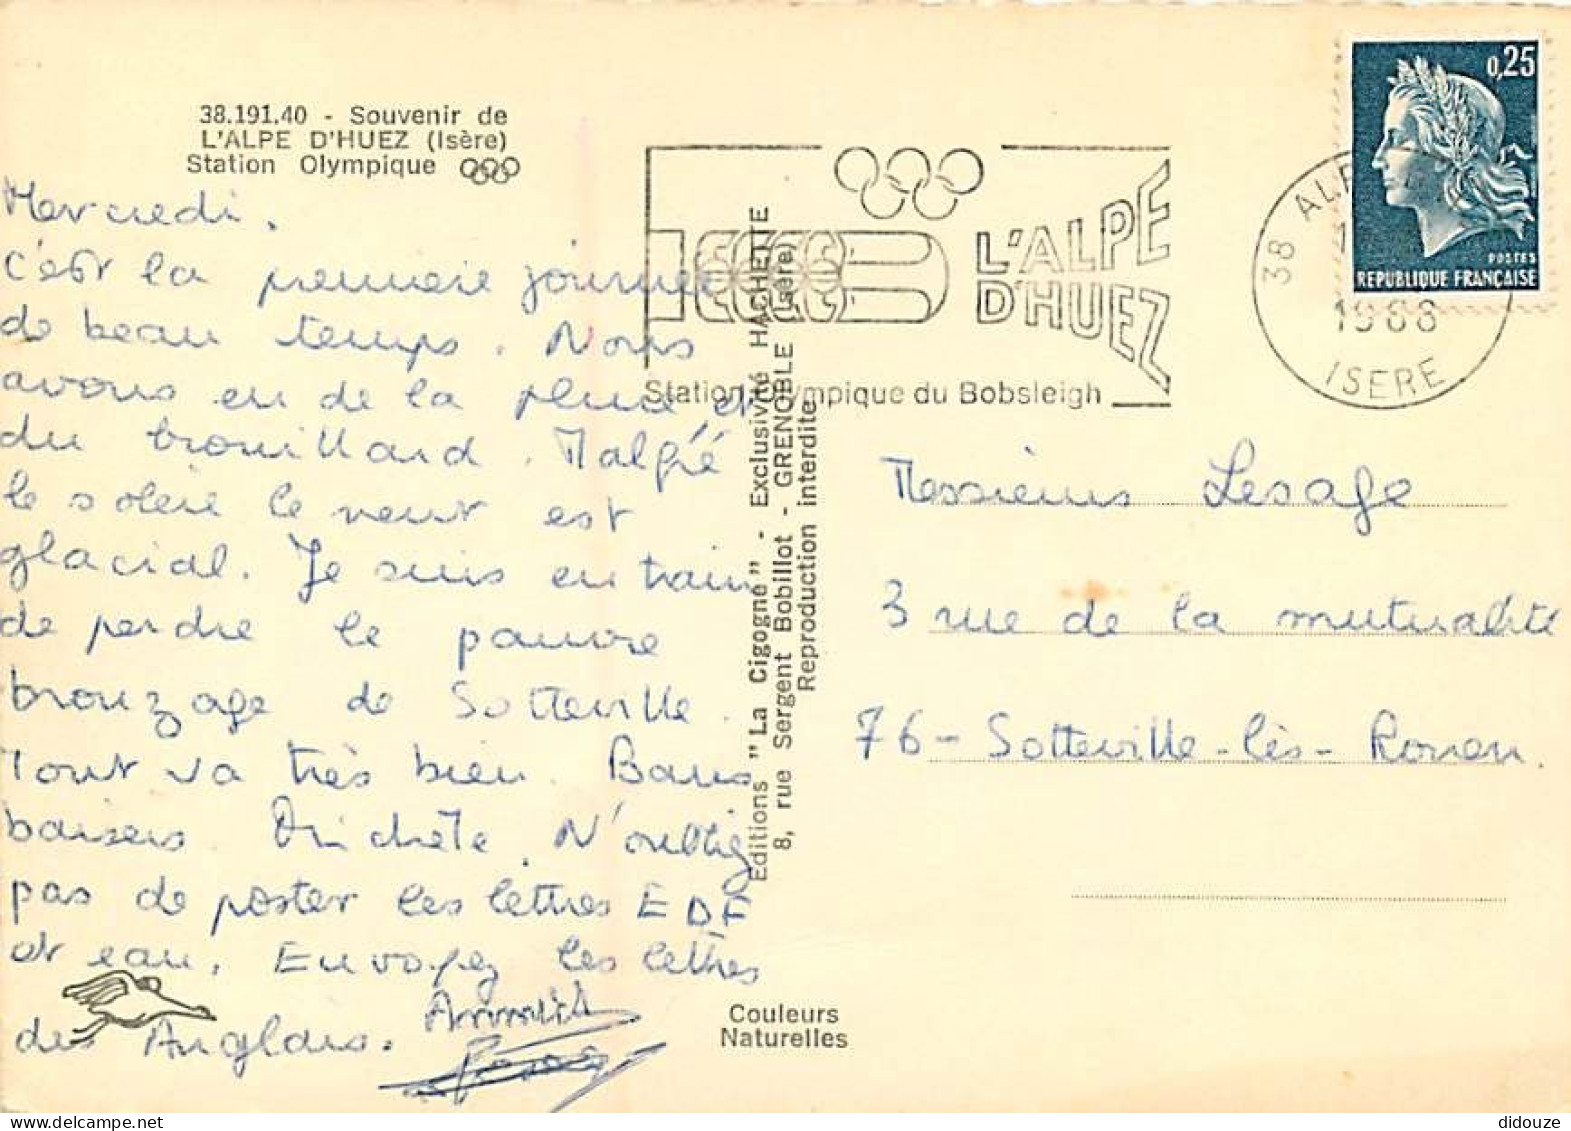 38.191.40 - Souvenir de
L'ALPE D'HUEZ (Isère)
Station Olympique
Mercredi.
C'est la première journée
de beau temps. Nous
avons eu de la pluie et
du brouillard. Malgré
le soleil le vent est
glacial. Je suis en train
de perdre le pauvre
bronzage de Sotteville.
Tout va très bien. Bons
baisers. Michèle. N'oubliez
pas de poster les lettres EDF
et eau. Envoyez les lettres
des Anglais.
Editions "La Cigogne" - Exclusivité HACHETTE
8, rue Sergent Bobillot - GRENOBLE (Isère)
Reproduction interdite
Couleurs
Naturelles
L'ALPE
D'HUEZ
Station Olympique du Bobsleigh
38 ALPE
1968
ISERE
0,25
POSTES
REPUBLIQUE FRANÇAISE
Messieurs Lesage
3 rue de la mutualité
76 - Sotteville-lès-Rouen.
didouze